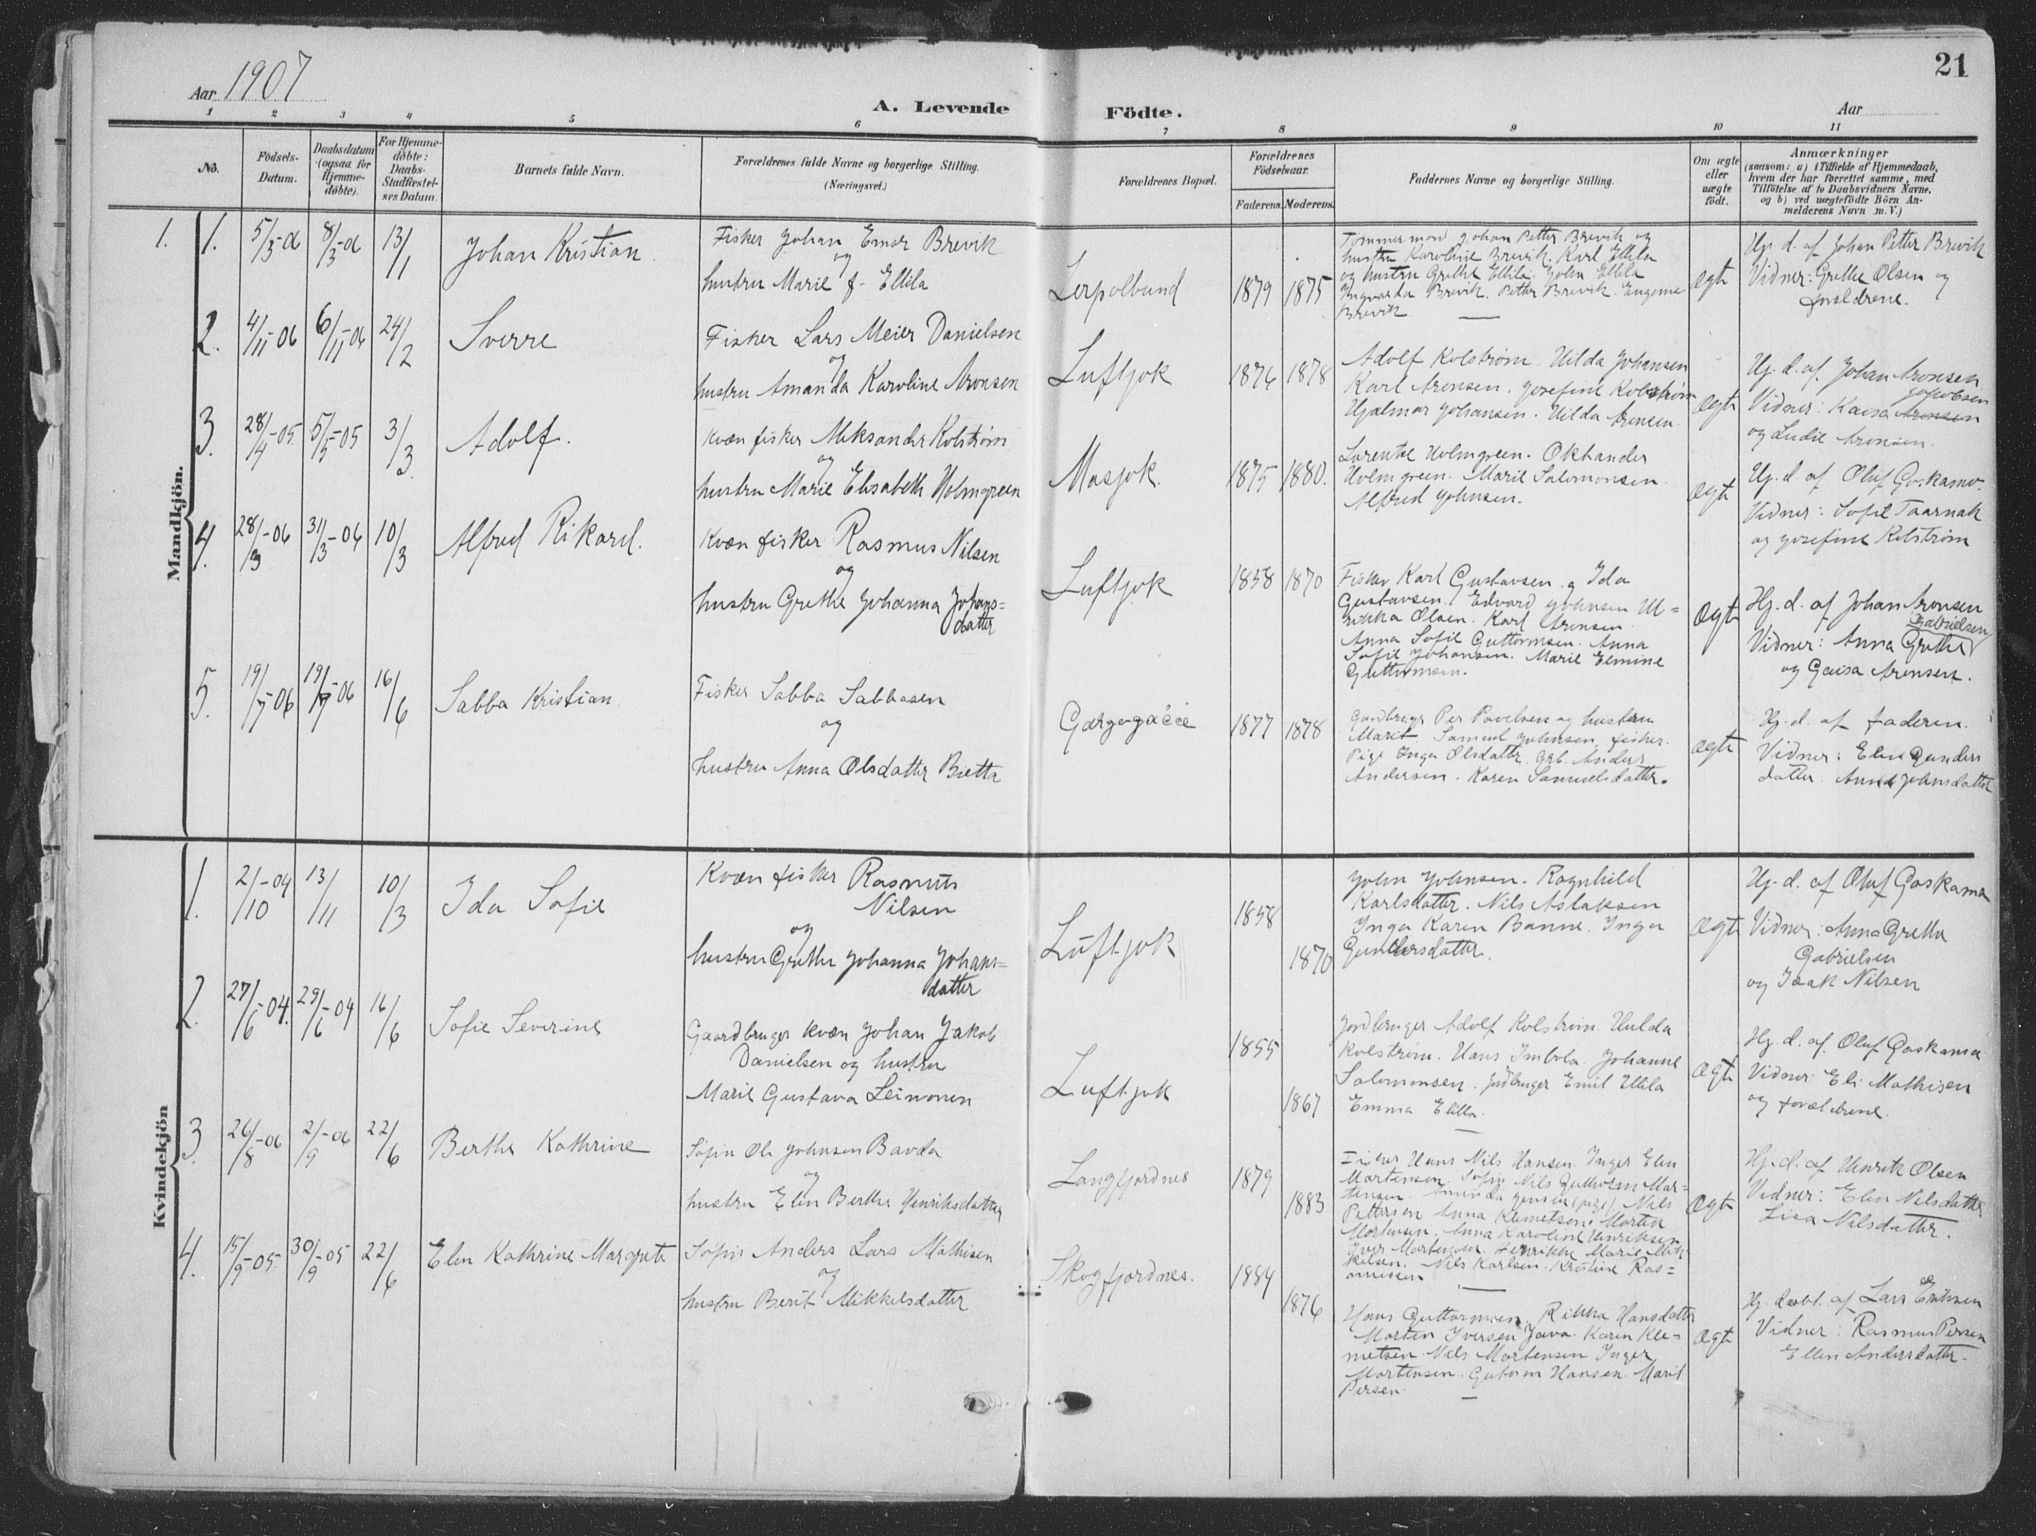 Aar 1907
21
A. Levende Födte.
Aar
1 2 3 4 5 6 7 8 9 10 11
No.
Födsels-
Datum.
Daabsdatum
(ogsaa for
Hjemme-
döbte).
For Hjemme-
döbte:
Daabs-
Stadfæstel-
ses Datum.
Barnets fulde Navn.
Forældrenes fulde Navne og borgerlige Stilling.
(Næringsvei.)
Forældrenes Bopæl.
Forældrenes
Födselsaar.
Faderens. Moderens.
Faddernes Navne og borgerlige Stilling.
Om ægte
eller
uægte
födt.
Anmærkninger
(saasom: a) i Tilfælde af Hjemmedaab,
hvem der har forrettet samme, med
Tilföielse af to Daabsvidners Navne,
og b) ved uægtefödte Börn An-
melderens Navn m. V.)
Mandkjön.
1. 1. 5/3-06 8/3-06 13/1
Johan Kristian
Fisker Johan Emar Brevik
og
hustru Marie f. Ellila
Lerpolbund
1879 1875
Tømmermand Johan Petter Brevik og
hustru Karoline Brevik. Karl Ellila
og hustru Grethe Ellila. John Ellila
Ingvarda Brevik. Petter Brevik. Eugenie
Brevik
ægte
Hj. d. af Johan Petter Brevik
Vidner: Grethe Olsen og
forældrene.
2. 4/11-06 6/11-06 24/2
Sverre
Fisker Lars Meier Danielsen
og
hustru Amanda Karoline Aronsen
Luftjok
1876 1878
Adolf Kolstrøm. Hilda Johansen
Karl Aronsen. Josefine Kolstrøm
Hjalmar Johansen. Hilda Aronsen.
ægte
Hj. d. af. Johan Aronsen
Jakobsen
Vidner: Kaisa Aronsen
og Ludie Aronsen.
3. 28/4-05 5/5-05 3/3
Adolf.
Kvæn fisker Aleksander Kolstrøm
og
hustru Marie Elisabeth Holmgreen
Masjok.
1875 1880.
Lorentse Holmgreen. Oktander
Holmgreen. Marie Salomonsen
Alfred Johnsen.
ægte
Hj. d af Oluf Goskamo.
Vidner: Sofie Taarnak
og Josefine Kolstrøm
4. 28/3-06 31/3-06 10/3
Alfred Rikard.
Kvæn fisker Rasmus Nilsen
og
hustru Grethe Johanna Johans=
datter
Luftjok
1858 1870
Fisker Karl Gustavsen og Ida
Gustavsen. Edvard Johnsen U-
Olsen. Karl Aronsen
Anna Sofie Guttormsen. Anna
Sofie Johansen. Marie Elmine
Guttormsen.
ægte
Hj. d. af Johan Aronsen
Gabrielsen
Vidner: Anna Grethe
og Gaisa Aronsen.
5. 19/7-06 19/7-06 16/6
Sabba Kristian
Fisker Sabba Sabbasen
og
hustru Anna Olsdatter Bietta
Gargogæcce
1877 1878
Gardbruger Per Povelsen og hustru
Marit. Samuel Johnsen fisker.
Pige Inga Olsdatter. Grb. Anders
Andersen. Karen Samuelsdatter.
ægte
Hj. d. af faderen.
Vidner: Elen Gunders
datter. Anna Johnsdatter
Kvindekjön
1. 2/10-04 13/11 10/3
Ida Sofie
Kvæn fisker Rasmus
Nilsen
og
hustru Grethe Johanna Johans=
datter
Luftjok
1858
1870
John Johnsen. Ragnhild
Karlsdatter. Nils Aslaksen
Inga Karen Banne. Inga
Gundersdatter.
ægte
Hj. d. af Oluf Goskama
Vidner: Anna Grethe
Gabrielsen
og Isak Nilsen
2. 27/6-04. 29/6-04 16/6
Sofie Severine
Gaardbruger kvæn Johan Jakob
Danielsen og hustru
Marie Gustava Leinonen
Luftjok
1855
1867
Jordbruger Adolf Kolstrøm. Hulda
Kolstrøm. Hans Imbola. Johanne
Salomonsen. Jordbruger Emil Ellila
Emma Ellila.
ægte
Hj. d. af. Oluf Goskama
Vidner: Eli Mathisen
og forældrene.
3. 26/8-06 2/9-06 22/6
Berthe Kathrine
Søfin Ole Johnsen Bavda
og
hustru Elen Berthe Henriksdatter
Langfjordnes
1879
1883
Fisker Hans Nils Hansen. Inger Elen
Mortensen. Søfin Nils Guttorm Mar-
tensen. Aminda Jensen (pige). Nils
Pettersen Anna Klemetsen. Morten
Mortensen. Anna Karoline Henriksen
Iver Mortensen. Henrikke Marie Mik-
kelsen. Nils Karlsen. Kristine Ras=
mussen
ægte
Hj. d. af Henrik Olsen
Vidner: Elen Nilsdatter
Lisa Nilsdatter.
4. 15/9-05 30/9-05 22/6
Elen Kathrine Margrete
Søfin Anders Lars Mathisen
og
hustru Berit Mikkelsdatter
Skogfjordnes.
1884
1876
Hans Guttormsen. Rikka Hansdatter
Morten Iversen Java. Karen Kle-
metsen. Nils Mortensen Inger
Mortensen. Gutorm Hansen. Marit
Persen.
ægte
Hj. døbt. af Lars Eriksen
Vidner: Rasmus Persen
Ellen Andersdatter.